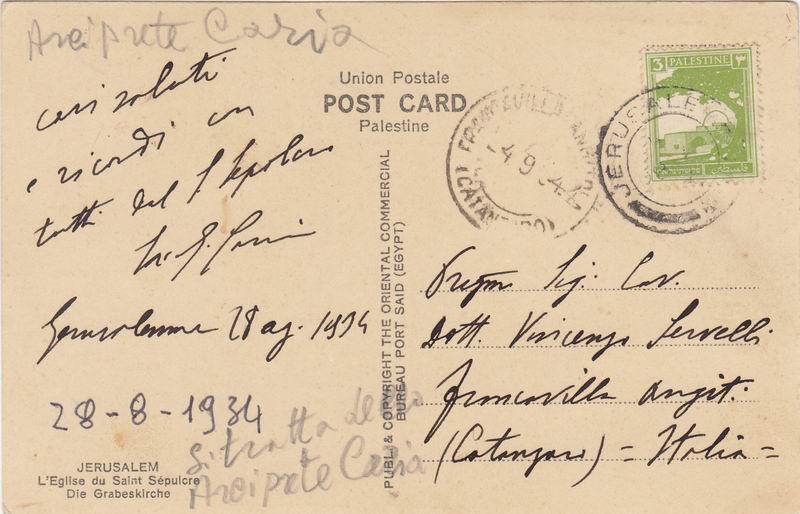 Arciprete Caria
Union Postale
POST CARD
Palestine
cari saluti
e ricordi con
tutti dal S. Sepolcro
Gerusalemme 28 ag. 1934
28-8-1934
si tratta dello
Arciprete Caria
JERUSALEM
L'Eglise du Saint Sépulcre
Die Grabeskirche
PUBL; & COPYRIGHT THE ORIENTAL COMMERCIAL
BUREAU PORT SAID (EGYPT)
FRANCAVILLA ANGITOLA
4 9 34
(CATANZARO)
JERUSALEM
3 PALESTINE ٣
فلسطين
Pregmo Sig. Cav.
Dott. Vincenzo Servelli
Francavilla Angit.
(Catanzaro) = Italia =